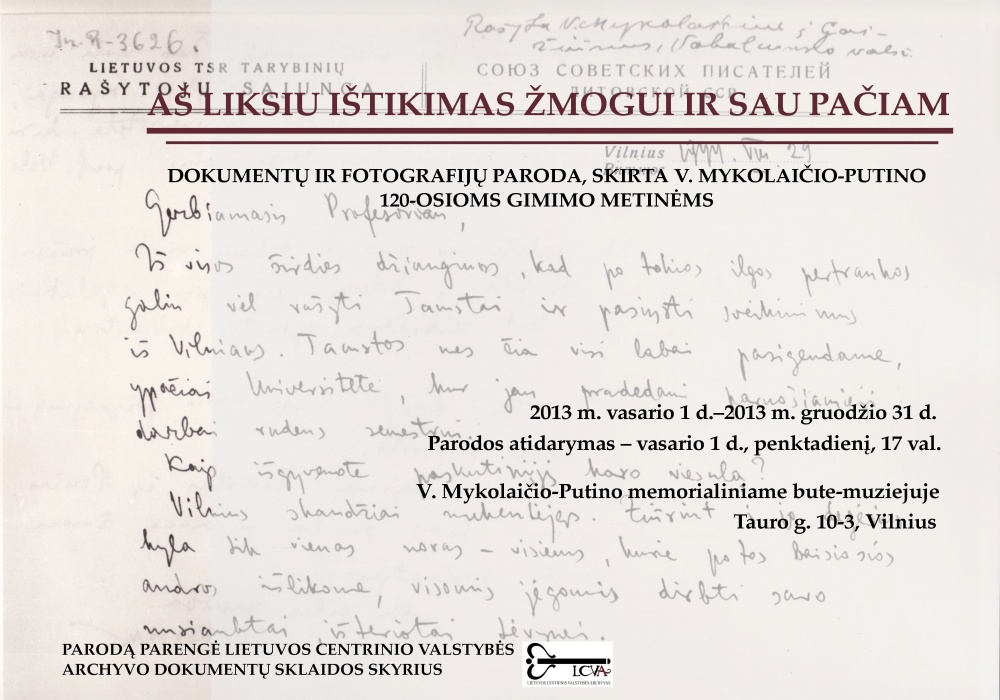 Inv. R-3626.
Rašyta V. Mykolaitienė į Gai-
žiūnus, Vabalninko valsč.
LIETUVOS TSR TARYBINIŲ
RAŠYTOJŲ SĄJUNGA
СОЮЗ СОВЕТСКИХ ПИСАТЕЛЕЙ
ЛИТОВСКОЙ ССР
AŠ LIKSIU IŠTIKIMAS ŽMOGUI IR SAU PAČIAM
Vilnius 1944. VIII 29
DOKUMENTŲ IR FOTOGRAFIJŲ PARODA, SKIRTA V. MYKOLAIČIO-PUTINO
120-OSIOMS GIMIMO METINĖMS
Gerbiamasis Profesoriau,
Iš visos širdies džiaugiuos, kad po tokios ilgos pertraukos
galiu vėl rašyti Tamstai ir pasiųsti sveikinimus
iš Vilniaus. Tamstos mes čia visi labai pasigendame,
ypačiai Universitete, kur jau pradedami paruošiamieji
darbai rudens semestrui.
2013 m. vasario 1 d.–2013 m. gruodžio 31 d.
Parodos atidarymas – vasario 1 d., penktadienį, 17 val.
Kaip išgyvenote paskutinįjį karo viesulą?
V. Mykolaičio-Putino memorialiniame bute-muziejuje
Vilnius skaudžiai nukentėjęs. Žiūrint į jo
Tauro g. 10-3, Vilnius
kyla tik vienas noras – visiems, kurie po tos baisiosios
audros išlikome, visomis jėgomis dirbti savo
nusiaubtai, išteriotai tėvynei.
PARODĄ PARENGĖ LIETUVOS CENTRINIO VALSTYBĖS
ARCHYVO DOKUMENTŲ SKLAIDOS SKYRIUS
LCVA
LIETUVOS CENTRINIS VALSTYBĖS ARCHYVAS